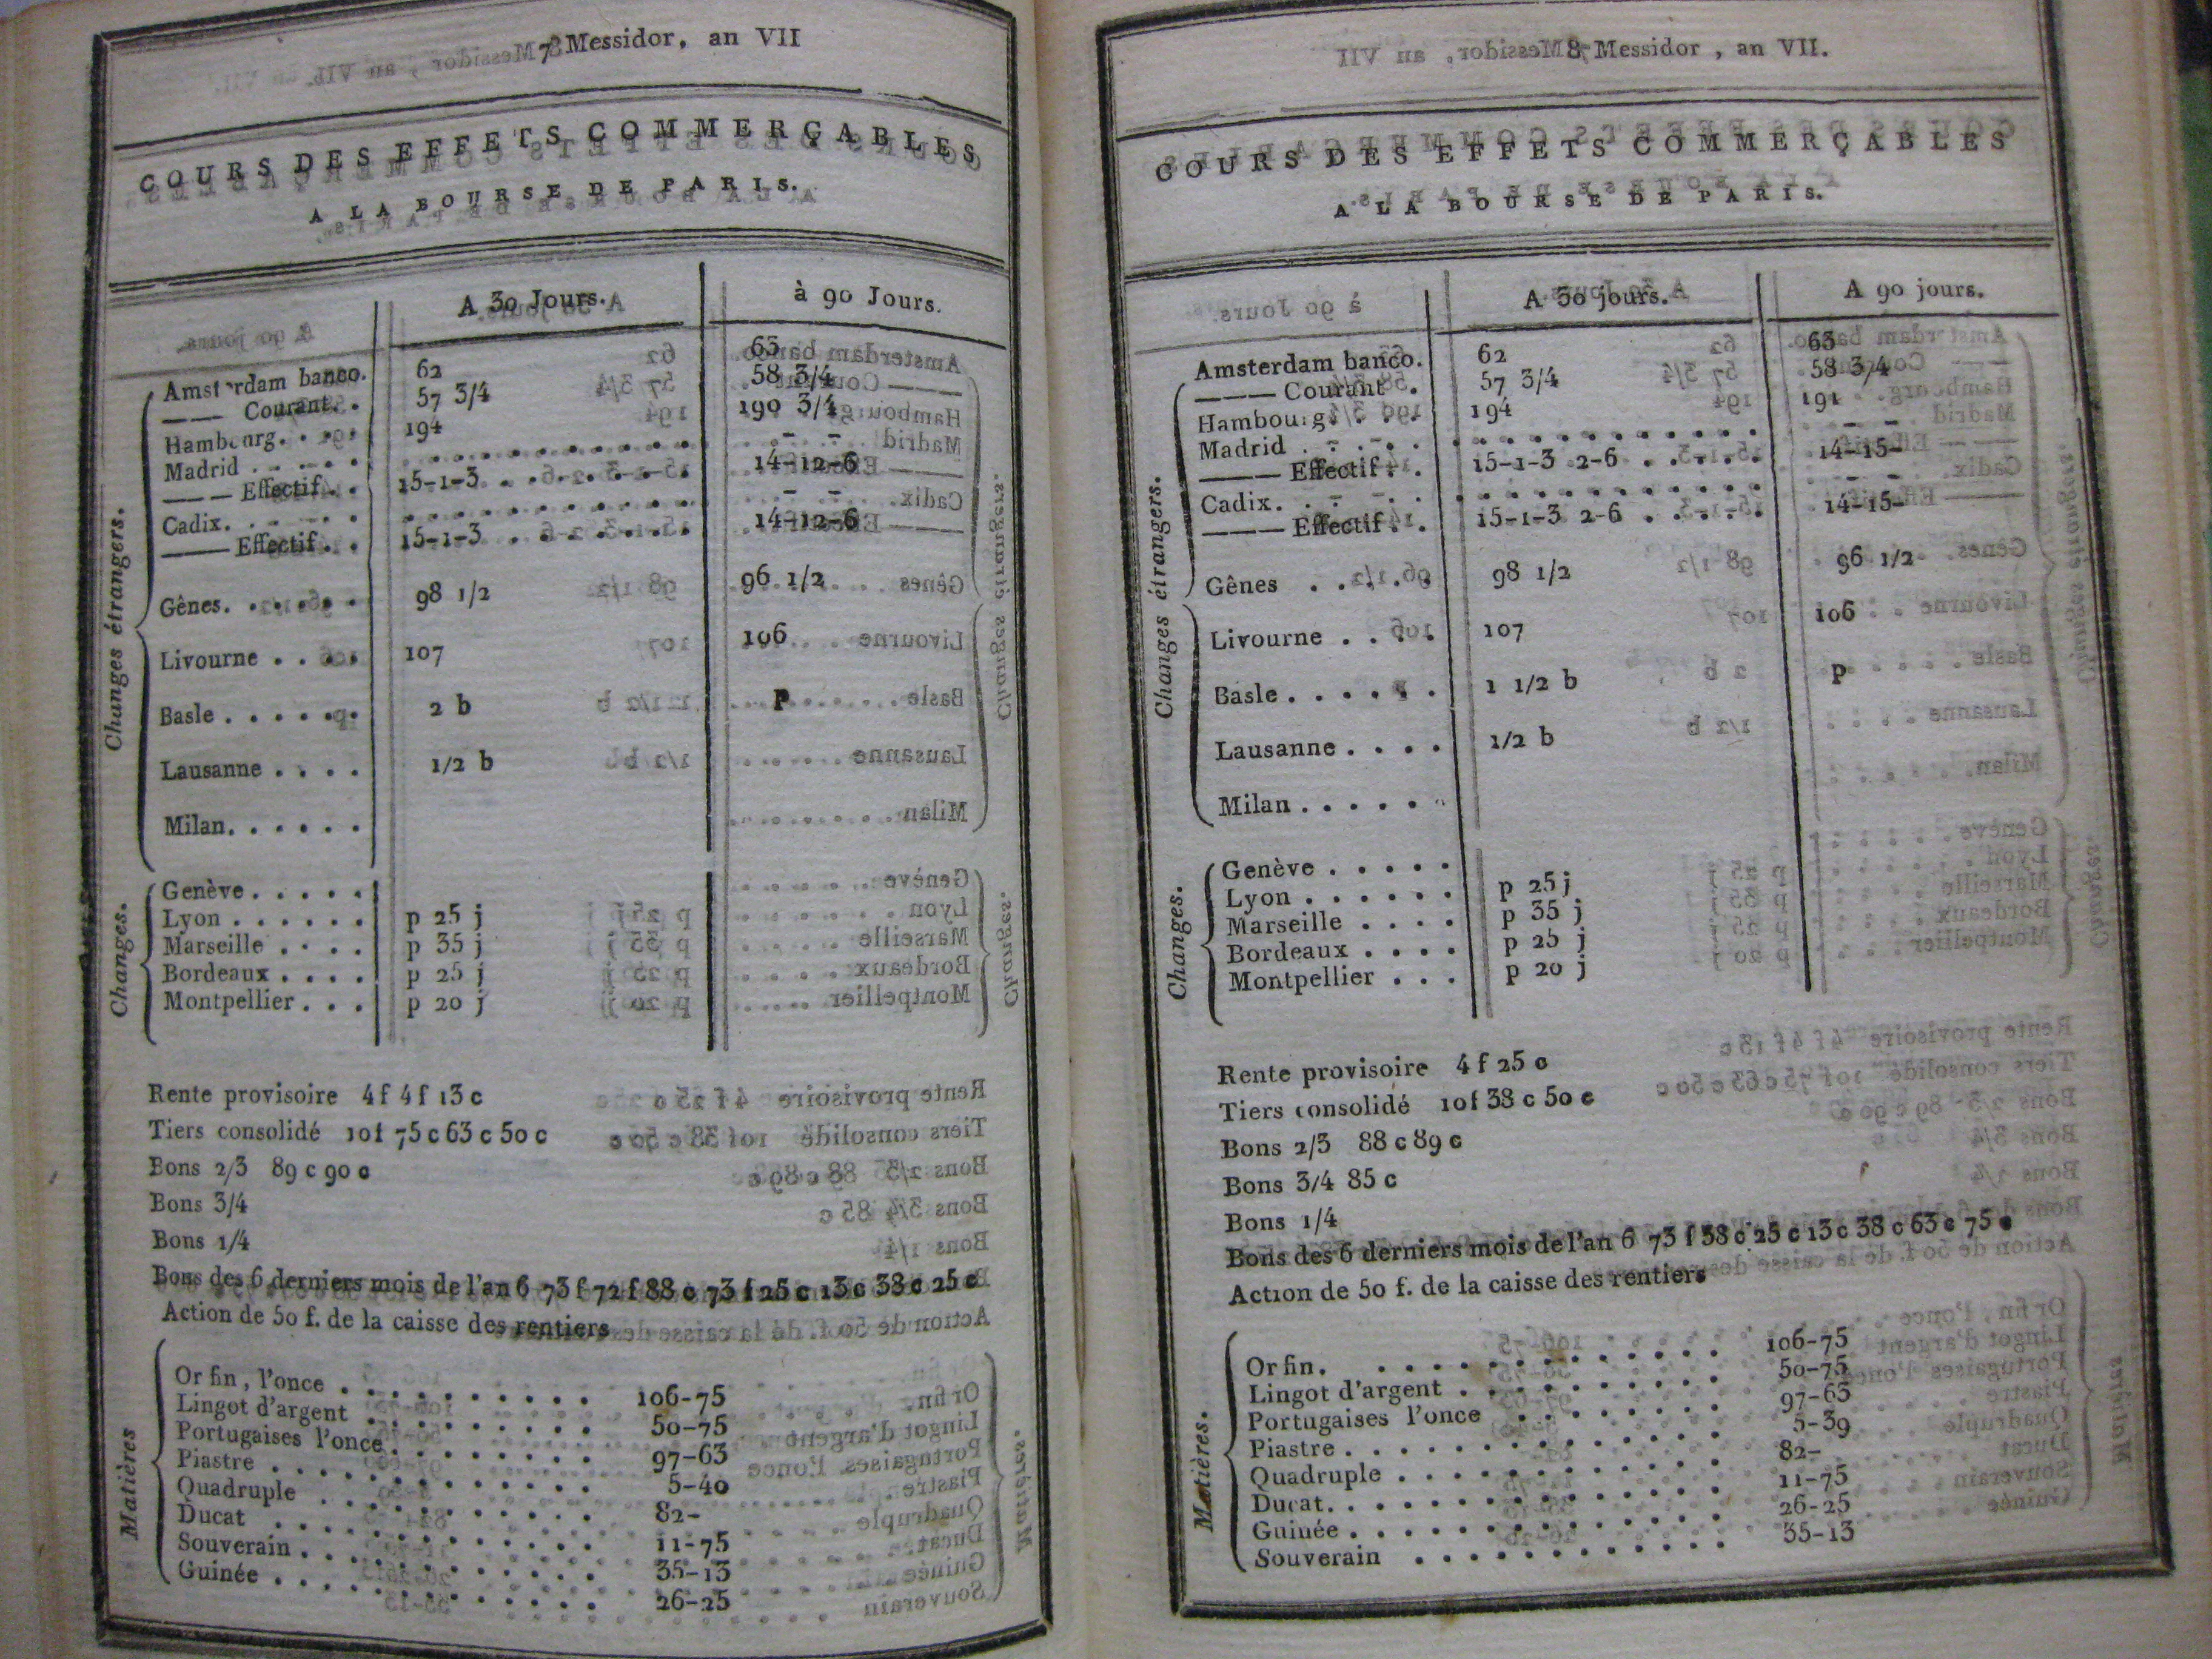 7 Messidor, an VII
COURS DES EFFETS COMMERÇABLES
A LA BOURSE DE PARIS.
A 30 Jours. à 90 Jours.
Changes étrangers.
Amsterdam banco. 62 63
——— Courant. . 57 3/4 58 3/4
Hambourg. . . . 194 190 3/4
Madrid . . . . . . . . . . . . . . . . – –
——— Effectif. . 15-1-3 . . . . . . . 14-12-6
Cadix. . . . . . . . . . . . . . . . – –
——— Effectif . . 15-1-3 . . . . . . . 14-12-6
Gênes. . . . . . 98 1/2 96 1/2
Livourne . . . . 107 106
Basle . . . . . . 2 b p
Lausanne . . . . 1/2 b
Milan. . . . . .
Changes.
Genève. . . . .
Lyon . . . . . . p 25 j
Marseille . . . . p 35 j
Bordeaux . . . . p 25 j
Montpellier . . . p 20 j
Rente provisoire 4 f 4 f 13 c
Tiers consolidé 10 f 75 c 63 c 50 c
Bons 2/3 89 c 90 c
Bons 3/4
Bons 1/4
Bons des 6 derniers mois de l'an 6 73 f 72 f 88 c 73 f 25 c 13 c 38 c 25 c
Action de 50 f. de la caisse des rentiers
Matières
Or fin, l'once . . . . . . . . . . 106-75
Lingot d'argent . . . . . . . . . 50-75
Portugaises l'once . . . . . . . . 97-63
Piastre . . . . . . . . . . . . 5-40
Quadruple . . . . . . . . . . . 82-
Ducat . . . . . . . . . . . . 11-75
Souverain . . . . . . . . . . . 35-13
Guinée . . . . . . . . . . . . 26-25
8 Messidor, an VII.
COURS DES EFFETS COMMERÇABLES
A LA BOURSE DE PARIS.
A 30 jours. A 90 jours.
Changes étrangers.
Amsterdam banco. 62 63
——— Courant . 57 3/4 58 3/4
Hambourg . . . 194 191
Madrid . . . . . . . . . . . . . . . – –
——— Effectif . . 15-1-3 2-6 . . . . . 14-15-
Cadix. . . . . . . . . . . . . . . – –
——— Effectif . . 15-1-3 2-6 . . . . . 14-15-
Gênes . . . . . 98 1/2 96 1/2
Livourne . . . . 107 106
Basle . . . . . . 1 1/2 b p
Lausanne . . . . 1/2 b
Milan . . . . . .
Changes.
Genève . . . . .
Lyon . . . . . . p 25 j
Marseille . . . . p 35 j
Bordeaux . . . . p 25 j
Montpellier . . . p 20 j
Rente provisoire 4 f 25 c
Tiers consolidé 10 f 38 c 50 c
Bons 2/3 88 c 89 c
Bons 3/4 85 c
Bons 1/4
Bons des 6 derniers mois de l'an 6 73 f 38 c 25 c 13 c 38 c 63 c 75 c
Action de 50 f. de la caisse des rentiers
Matières.
Or fin. . . . . . . . . . . . . 106-75
Lingot d'argent . . . . . . . . . 50-75
Portugaises l'once . . . . . . . . 97-63
Piastre . . . . . . . . . . . . 5-39
Quadruple . . . . . . . . . . . 82-
Ducat. . . . . . . . . . . . . 11-75
Guinée . . . . . . . . . . . . 26-25
Souverain . . . . . . . . . . . 35-13